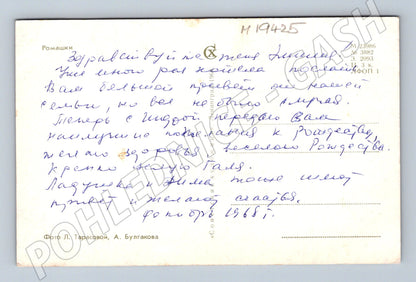 M 19425
Ромашки
Здравствуйте
Уже много раз хотела послать
Вам большой привет от нашей
семьи, но все не было случая.
Теперь с передаю Вам
наилучшие пожелания к Рождеству,
желаю здоровья веселого Рождества.
Крепко целую Галя.
и Дима тоже шлют
привет и желают счастья.
1968 г.
Фото Л. Тарасовой, А. Булгакова
POHLEDNICE - GASH